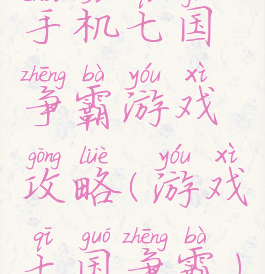 手机七国
zhēng bà yóu xì
争霸游戏
gōng lüè yóu xì
攻略(游戏
qī guó zhēng bà
七国争霸)